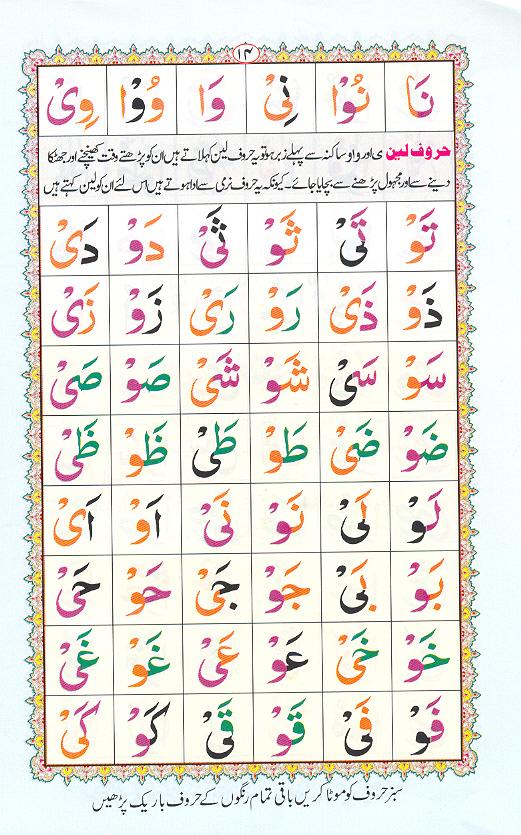 ۱۴
نَا نُوْا نِیْ وَا وُوْا وِیْ
حروف لین ی اور واو ساکنہ سے پہلے زبر ہو تو حروف لین کہلاتے ہیں ان کو پڑھتے وقت کھینچنے اور جھٹکا
دینے سے اور مجہول پڑھنے سے بچایا جائے۔ کیونکہ یہ حروف نرمی سے ادا ہوتے ہیں اس لئے ان کو لین کہتے ہیں
تَوْ تَیْ ثَوْ ثَیْ دَوْ دَیْ
ذَوْ ذَیْ رَوْ رَیْ زَوْ زَیْ
سَوْ سَیْ شَوْ شَیْ صَوْ صَیْ
ضَوْ ضَیْ طَوْ طَیْ ظَوْ ظَیْ
لَوْ لَیْ نَوْ نَیْ اَوْ اَیْ
بَوْ بَیْ جَوْ جَیْ حَوْ حَیْ
خَوْ خَیْ عَوْ عَیْ غَوْ غَیْ
فَوْ فَیْ قَوْ قَیْ کَوْ کَیْ
سبز حروف کو موٹا کریں باقی تمام رنگوں کے حروف باریک پڑھیں